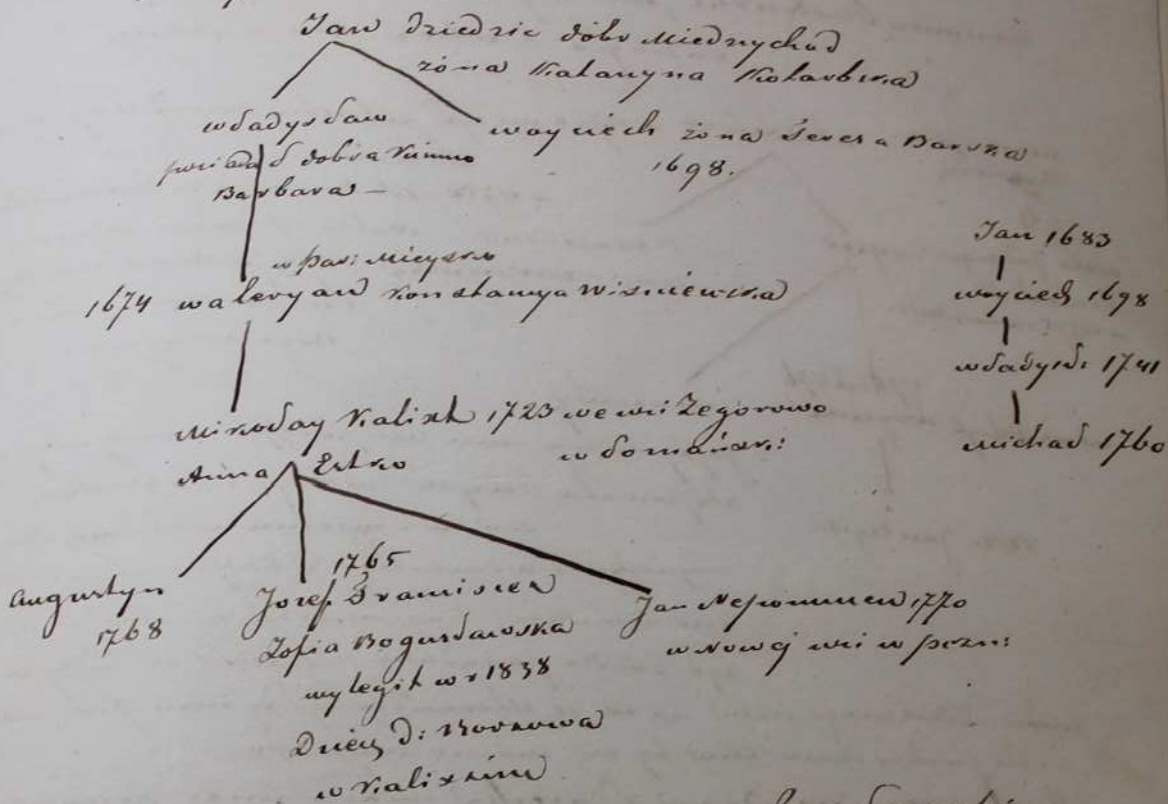 Jan dziedzic dóbr Miedzychód
żona Katarzyna Kotarbska
Władysław
posiadał dobra
Barbara —
Woyciech żona Teresa Barska
1698.
w Par: Mieysko
1674 Waleryan Konstancya Wiśniewska
Mikołay Kalixt 1723 we wsi Zegorowo
Anna
Augustyn
1768
1765
Jozef Franciszek
Zofia Bogusławska
wylegit w r 1838
Dzied: d:
w Kaliskim
Jan Nepomucen 1770
w Nowej wsi w pozn:
Jan 1683
Woyciech 1698
Władysł: 1741
Michał 1760